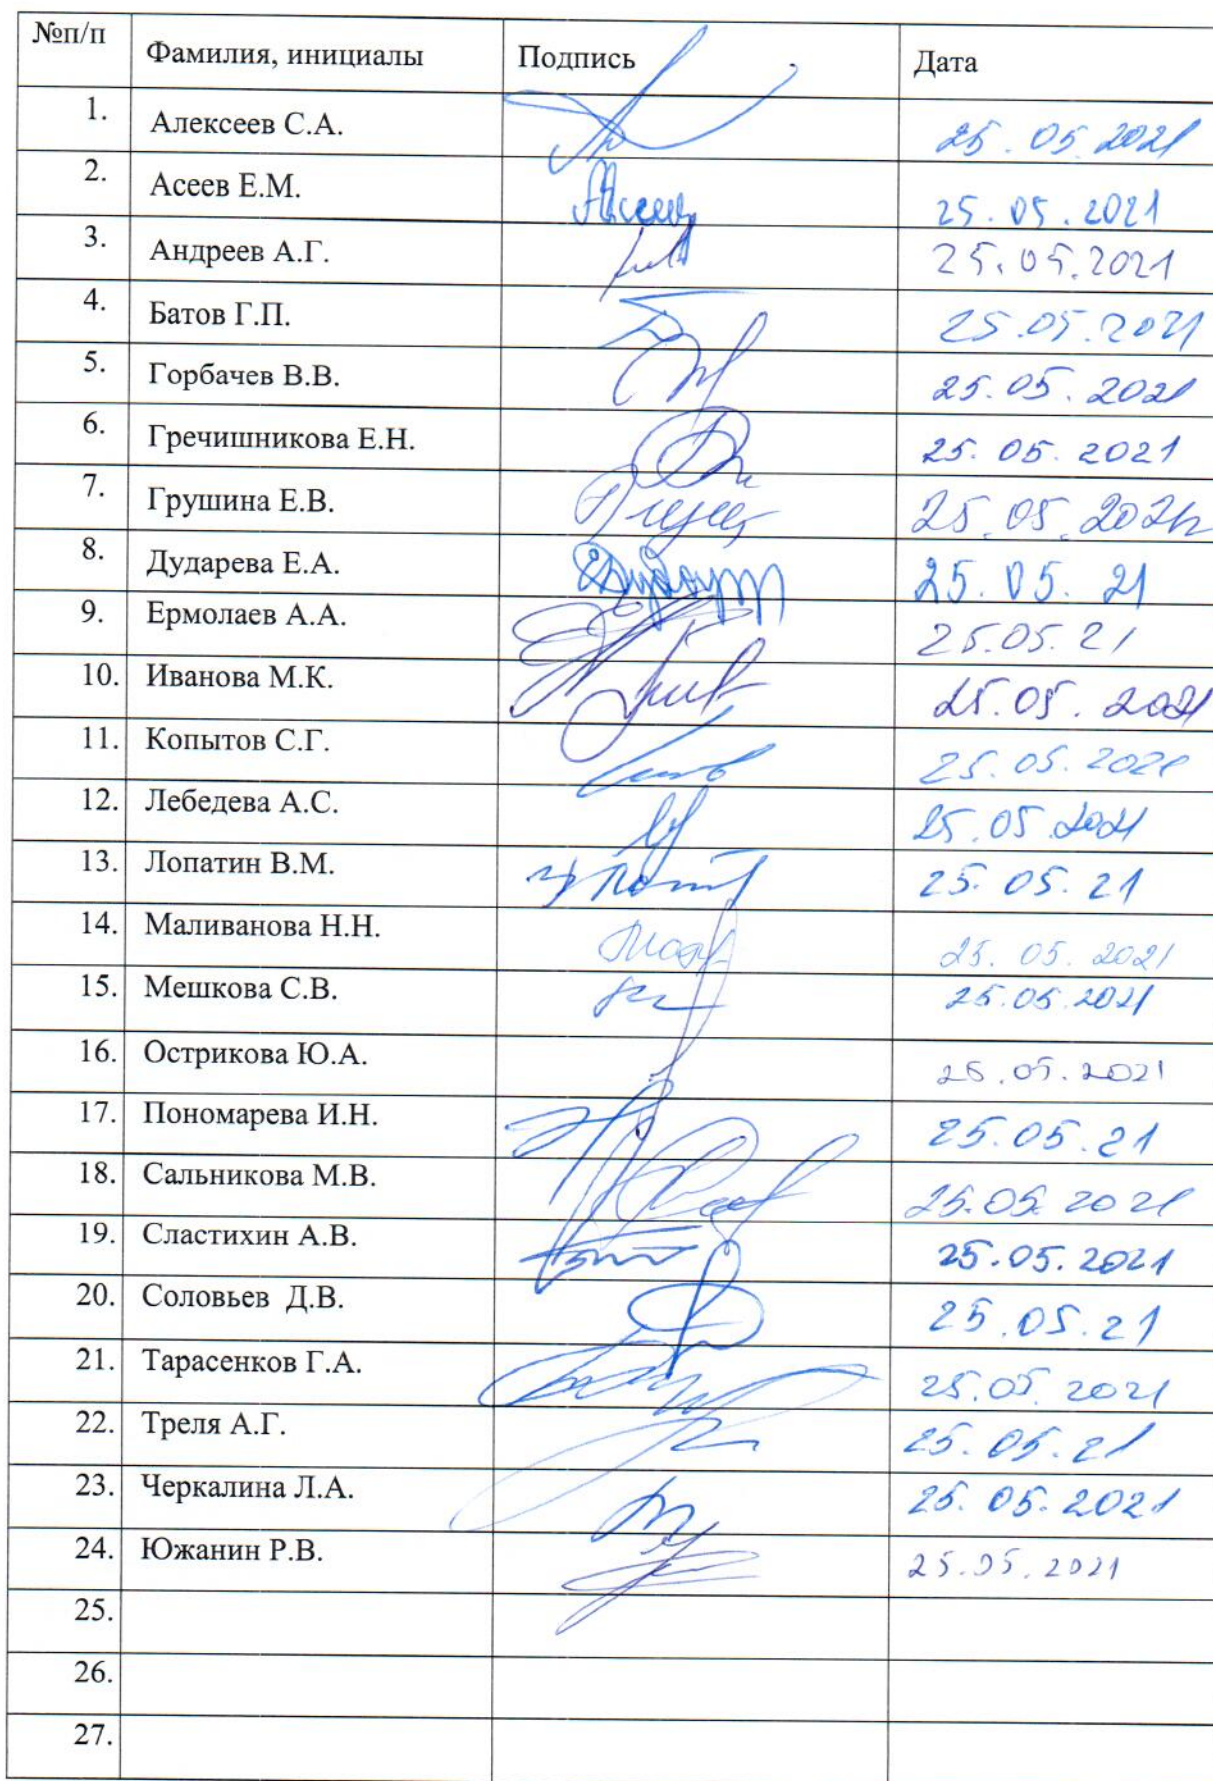 №п/п Фамилия, инициалы Подпись Дата
1. Алексеев С.А. 25.05.2021
2. Асеев Е.М. 25.05.2021
3. Андреев А.Г. 25.05.2021
4. Батов Г.П. 25.05.2021
5. Горбачев В.В. 25.05.2021
6. Гречишникова Е.Н. 25.05.2021
7. Грушина Е.В. 25.05.2021г
8. Дударева Е.А. 25.05.21
9. Ермолаев А.А. 25.05.21
10. Иванова М.К. 25.05.2021
11. Копытов С.Г. 25.05.2021
12. Лебедева А.С. 25.05.2021
13. Лопатин В.М. 25.05.21
14. Маливанова Н.Н. 25.05.2021
15. Мешкова С.В. 25.05.2021
16. Острикова Ю.А. 25.05.2021
17. Пономарева И.Н. 25.05.21
18. Сальникова М.В. 25.05.2021
19. Сластихин А.В. 25.05.2021
20. Соловьев Д.В. 25.05.21
21. Тарасенков Г.А. 25.05.2021
22. Треля А.Г. 25.05.21
23. Черкалина Л.А. 25.05.2021
24. Южанин Р.В. 25.05.2021
25.
26.
27.